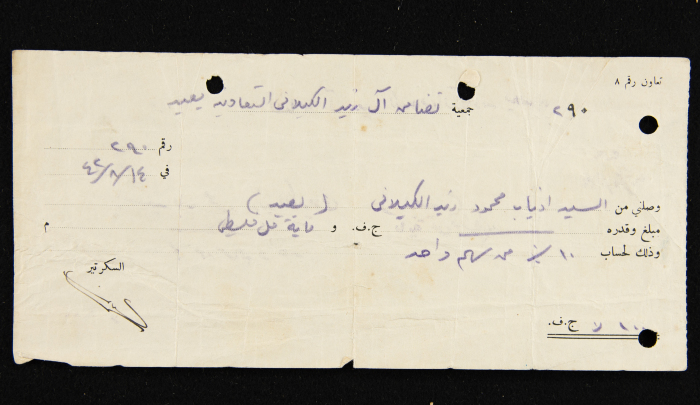 تعاون رقم ٨
٢٩٠
جمعية تضامن آل زيد الكيلاني التعاونية يعبد
رقم ٢٩٠
في ٤٢/٨/١٤
وصلني من السيد ذياب محمود زيد الكيلاني (يعبد)
مبلغ وقدره ج.ف. و ماية مل فلسطيني م
وذلك لحساب ١٠٪ من سهم واحد
السكرتير
١٠٠ ج.ف.